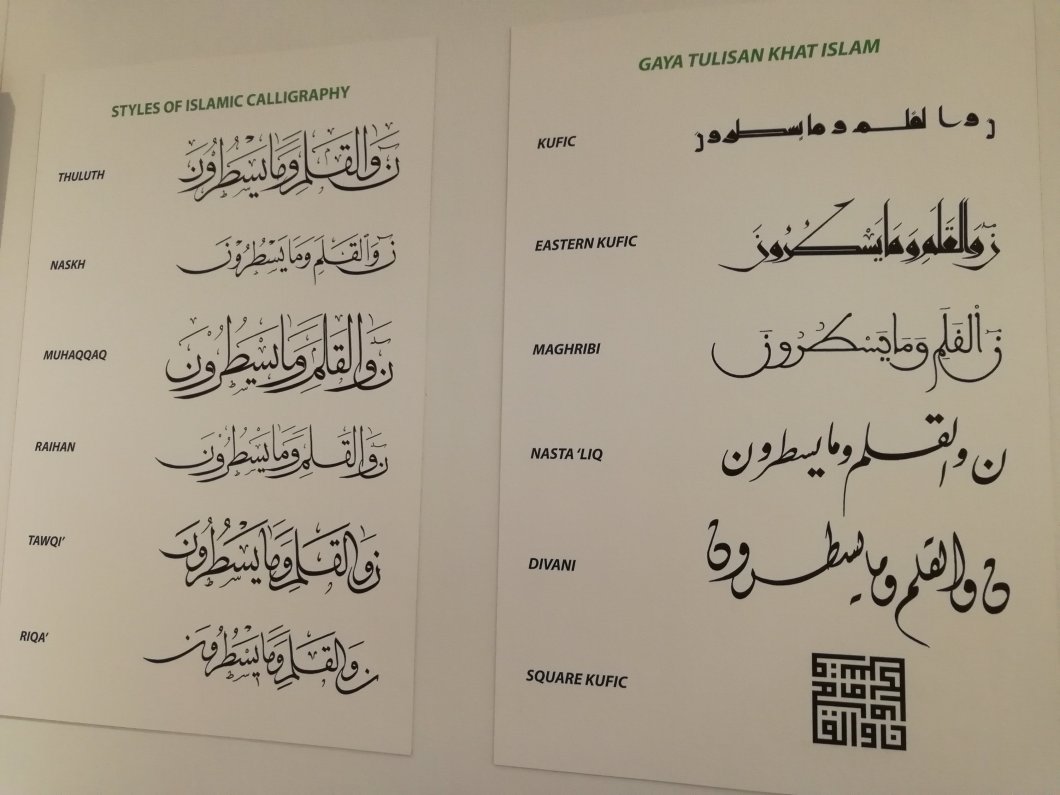 STYLES OF ISLAMIC CALLIGRAPHY
THULUTH
ن وَالْقَلَمِ وَمَا يَسْطُرُونَ
NASKH
ن وَالْقَلَمِ وَمَا يَسْطُرُونَ
MUHAQQAQ
ن وَالْقَلَمِ وَمَا يَسْطُرُونَ
RAIHAN
ن وَالْقَلَمِ وَمَا يَسْطُرُونَ
TAWQI’
ن وَالْقَلَمِ وَمَا يَسْطُرُونَ
RIQA’
ن وَالْقَلَمِ وَمَا يَسْطُرُونَ
GAYA TULISAN KHAT ISLAM
KUFIC
ن و ا لقلم و ما يسطرون
EASTERN KUFIC
ن وَالْقَلَمِ وَمَا يَسْطُرُونَ
MAGHRIBI
ن وَالْقَلَمِ وَمَا يَسْطُرُونَ
NASTA ‘LIQ
ن والقلم وما يسطرون
DIVANI
ن والقلم وما يسطرون
SQUARE KUFIC
ن والقلم وما يسطرون